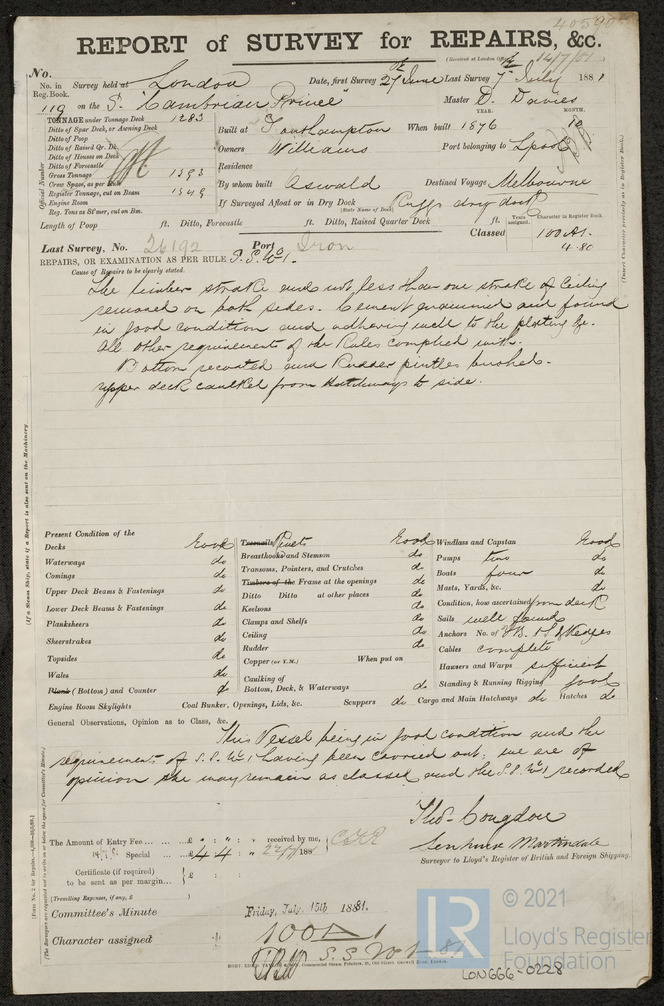 REPORT of SURVEY for REPAIRS, &c.
(Received at London Office 14/7/81
No.
No. in Reg. Book. Survey held at London Date, first Survey 27th June Last Survey 7th July 1881
119 on the Sr. "Cambrian Prince" Master D. Davies
TONNAGE under Tonnage Deck 1283
Ditto of Spar Deck, or Awning Deck
Ditto of Poop
Ditto of Raised Qr. Dk.
Ditto of Houses on Deck
Ditto of Forecastle
Gross Tonnage 1393
Crew Space, as per Rule
Register Tonnage, cut on Beam 1349
Engine Room
Reg. Tons as St'mer, cut on Bm.
Official Number
YEAR. MONTH.
Built at Southampton When built 1876 10
Owners Williams Port belonging to Lpool
Residence
By whom built Oswald Destined Voyage Melbourne
If Surveyed Afloat or in Dry Dock Cuffs dry dock
(State Name of Dock)
Length of Poop ft. Ditto, Forecastle ft. Ditto, Raised Quarter Deck ft.
Years assigned. Character in Register Book.
Classed 100 A1.
4.80
(Insert Character precisely as in Register Book.)
Last Survey, No. 26192 Port Iron
REPAIRS, OR EXAMINATION AS PER RULE S.S. No 1.
Cause of Repairs to be clearly stated.
The limber strake and not less than one strake of Ceiling
removed on both sides. Cement examined and found
in good condition and adhering well to the plating &c.
All other requirements of the Rules complied with.
Bottom recoated and Rudder pintles bushed.
Upper deck caulked from Hatchways to side.
(If a Steam Ship, state if a Report is also sent on the Machinery.
Present Condition of the
Decks Good
Waterways do
Comings do
Upper Deck Beams & Fastenings do
Lower Deck Beams & Fastenings do
Planksheers do
Sheerstrakes do
Topsides do
Wales do
Plank (Bottom) and Counter do
Engine Room Skylights Coal Bunker, Openings, Lids, &c. Scuppers do Cargo and Main Hatchways do Hatches do
Treenails Rivets Good
Breasthooks and Stemson do
Transoms, Pointers, and Crutches do
Timbers of the Frame at the openings do
Ditto Ditto at other places do
Keelsons do
Clamps and Shelfs do
Ceiling do
Rudder do
Copper (or Y.M.) When put on
Caulking of
Bottom, Deck, & Waterways do
Windlass and Capstan Good
Pumps two do
Boats four do
Masts, Yards, &c. do
Condition, how ascertained from deck
Sails well found
Anchors No. of 3 B. 1 S. 2 Kedges
Cables complete
Hawsers and Warps sufficient
Standing & Running Rigging good
General Observations, Opinion as to Class, &c.
This Vessel being in good condition and the
requirements of S.S. No 1 having been carried out, we are of
opinion she may remain as classed and the S.S. No 1 recorded
Thos. Congdon
Senhouse Martindale
Surveyor to Lloyd's Register of British and Foreign Shipping.
The Amount of Entry Fee ... £ : : received by me,
Special ... £ 4 4 : 188
Certificate (if required)
to be sent as per margin...
(Travelling Expenses, if any, £ )
Committee's Minute Friday, July 15th 1881.
Character assigned 100 A 1
S.S. No 1 - 81
© 2021
LR
Lloyd's Register
Foundation
LON666-0228